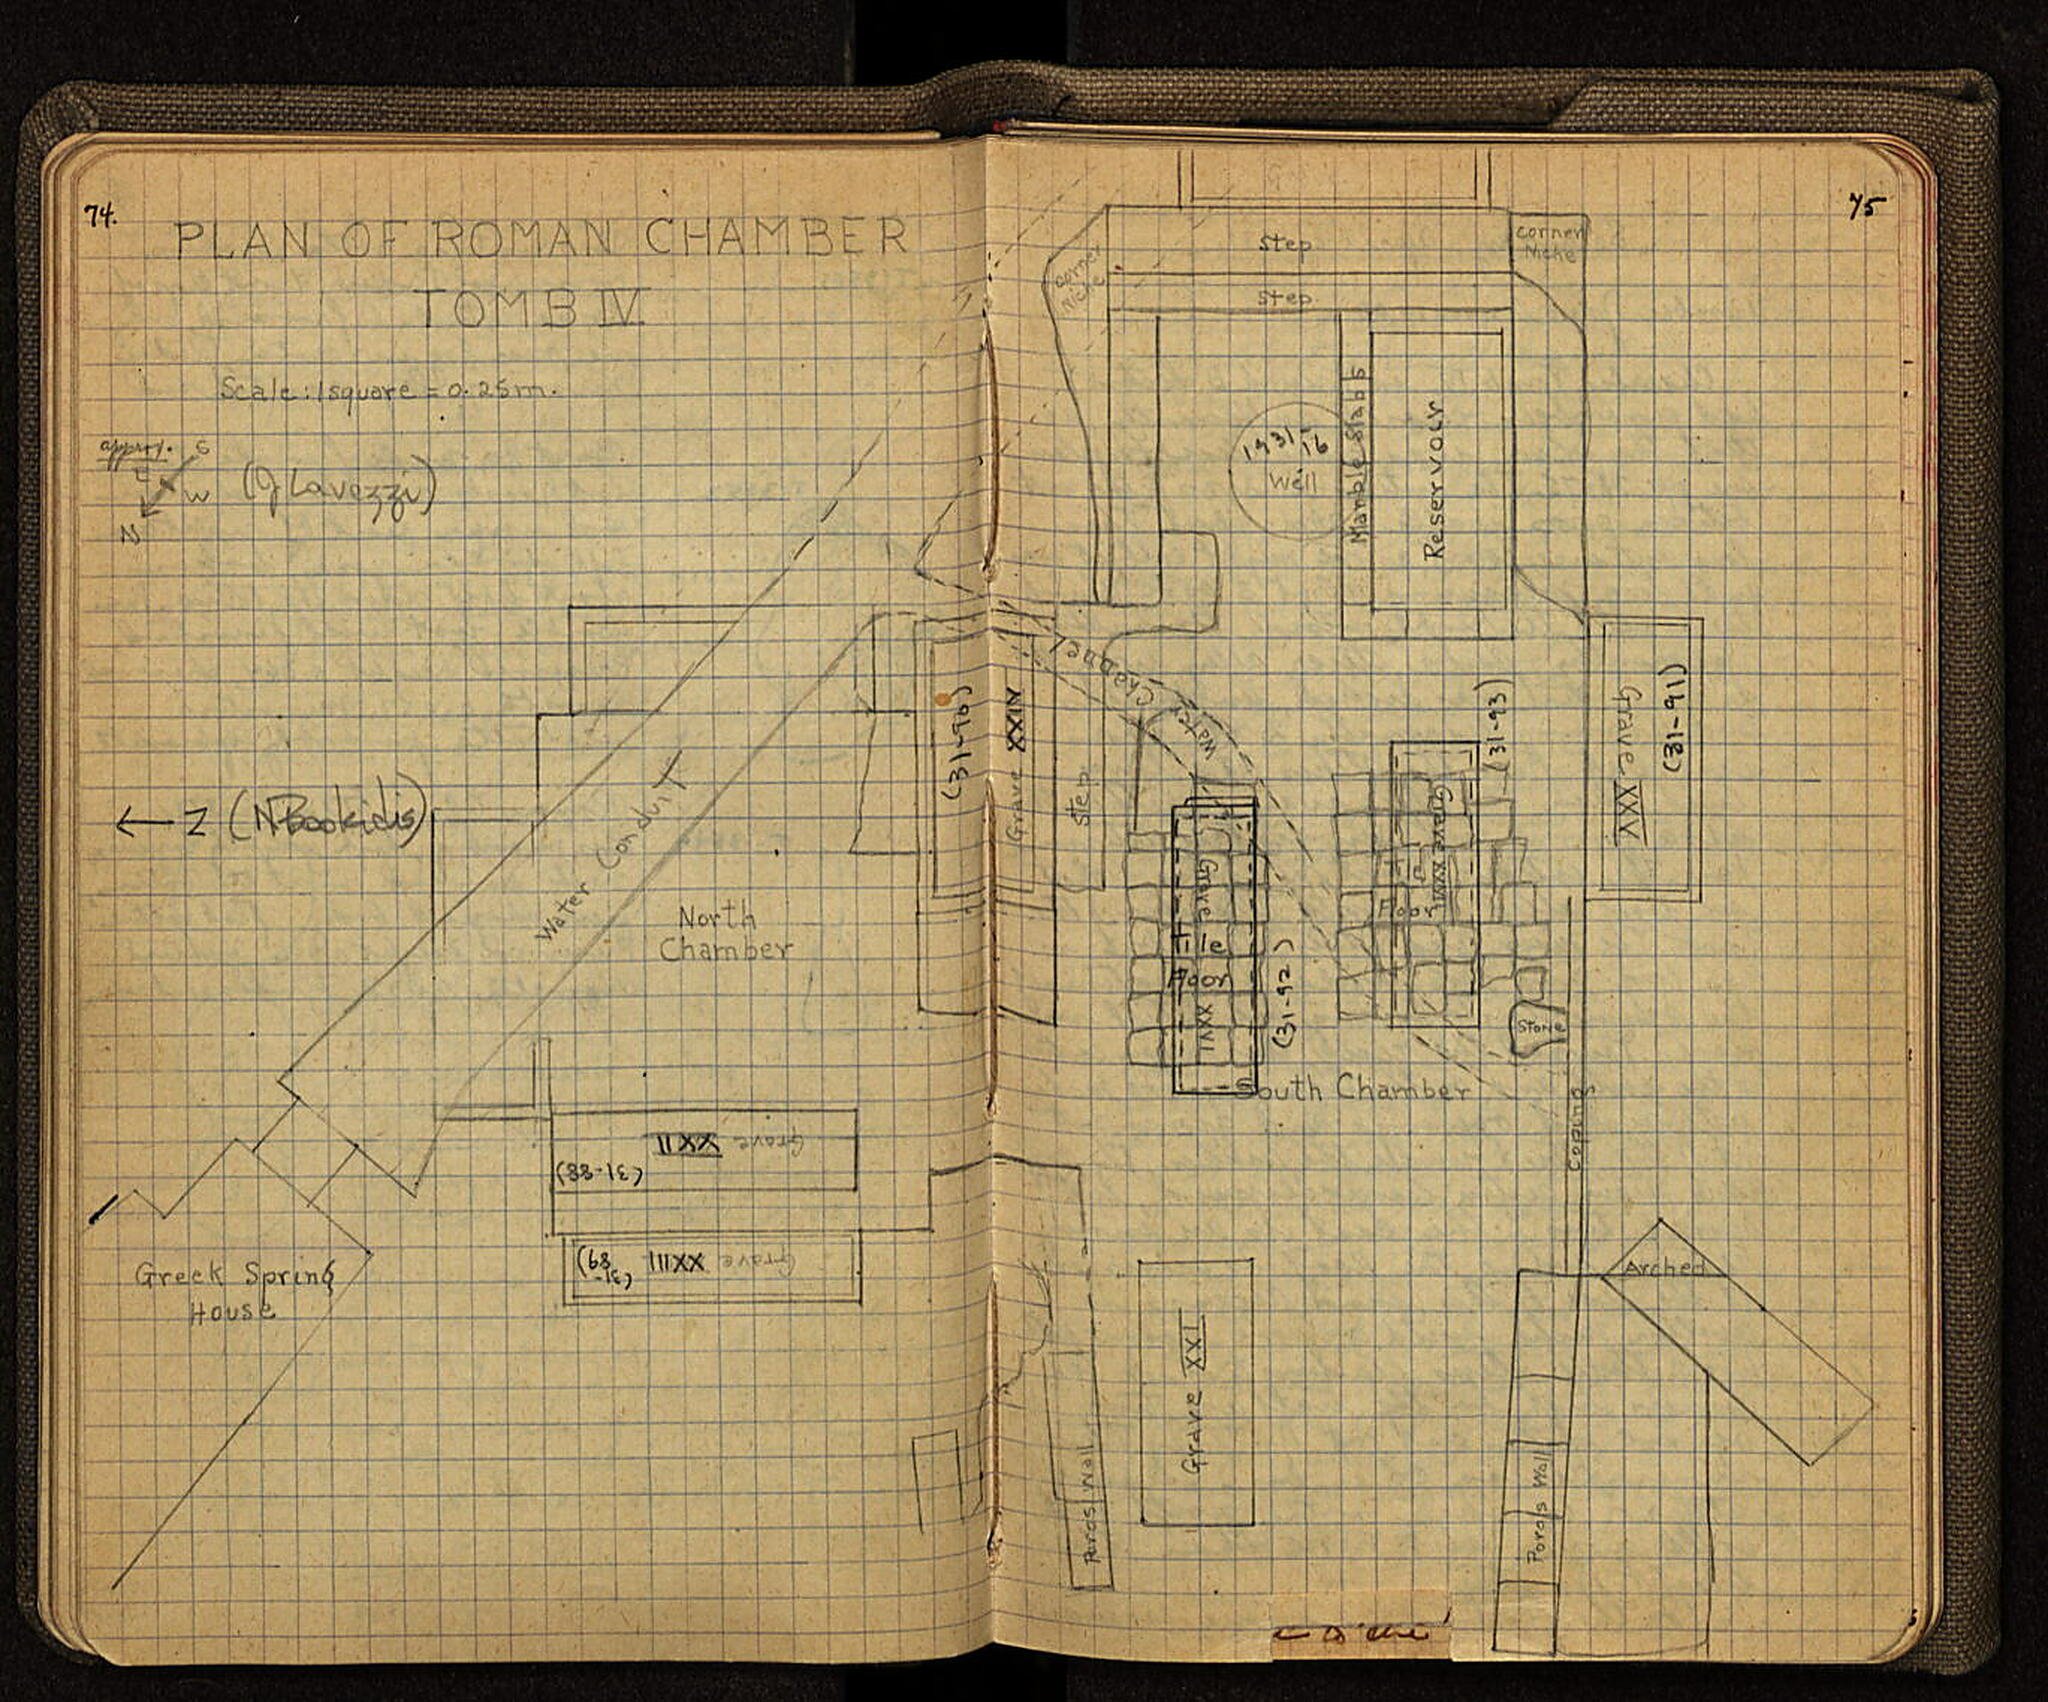 74.
PLAN OF ROMAN CHAMBER
TOMB IV
Scale: 1 square = 0.25m.
approx.
S
E
W
N
(J Lavezzi)
← Z (N Bookidis)
Water Conduit
North
Chamber
Grave XXII
(31-88)
Grave XXIII
(31-89)
Greek Spring
House
75
Step
Step
corner
Niche
corner
Niche
1931/16
Well
Marble Slabs
Reservoir
Water Channel
(31-90)
Grave XXIV
Step
Grave XXV
(31-91)
Grave XXVI
Tile
Floor
(31-92)
Grave
Floor
(31-93)
Stone
South Chamber
Coping
Arched
Grave XXI
Poros Wall
Poros Wall